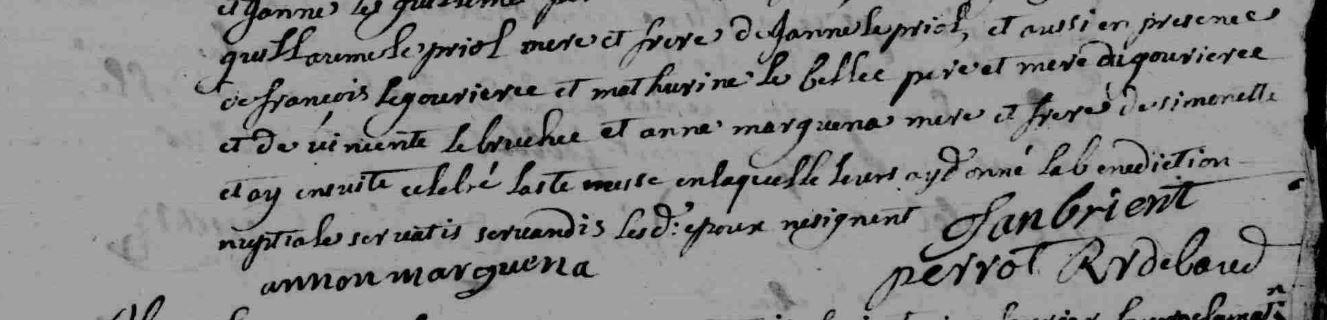 et Janne les
guillaume le priol mere et frere de Janne le priol, et aussi en presence
de francois le gourieree et mathurine le bellec pere et mere du gourieree
et de vincente le bruchec et anne marguena mere et frere de simonette
et ay ensuite celebré la ste messe en laquelle leurs ay donné la benediction
nuptiale servatis servandis les d: epoux ne signent Jan brient
annon marguena perrot Rr de baud